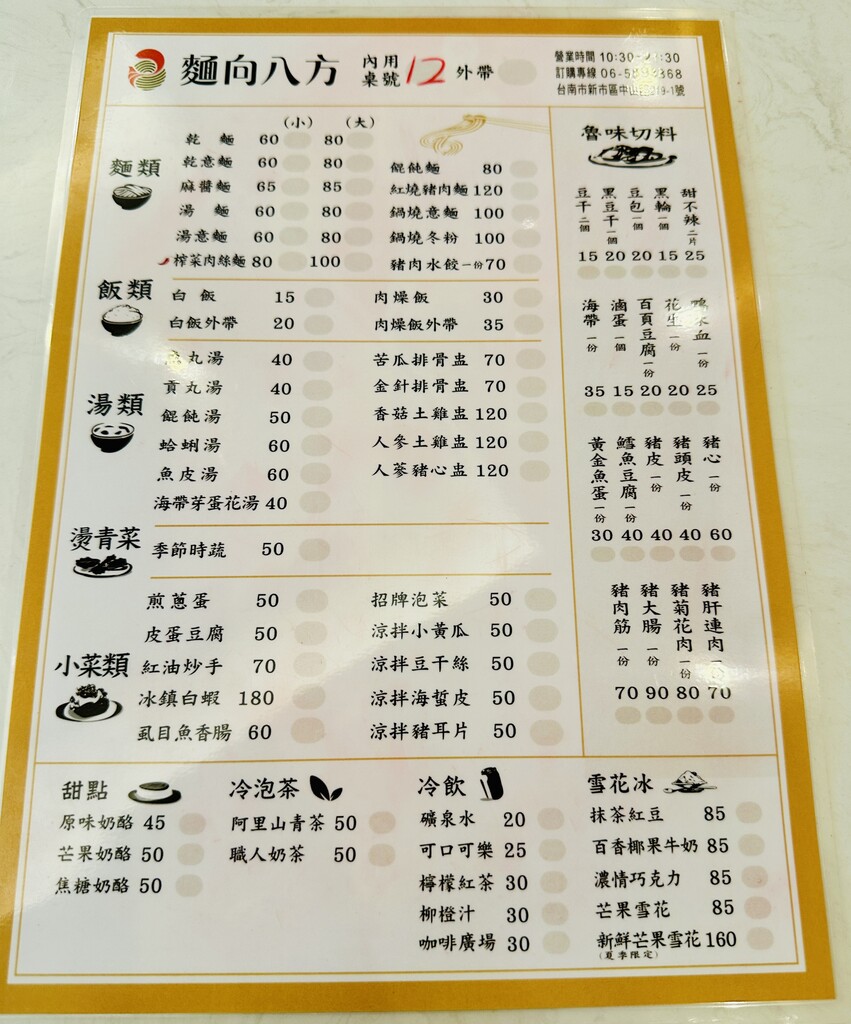 麵向八方
內用
桌號 12 外帶
營業時間 10:30-
訂購專線 06-
台南市新市區中山
麵類
(小) (大)
乾麵 60 80
乾意麵 60 80
麻醬麵 65 85
湯麵 60 80
湯意麵 60 80
榨菜肉絲麵 80 100
餛飩麵 80
紅燒豬肉麵 120
鍋燒意麵 100
鍋燒冬粉 100
豬肉水餃一份 70
飯類
白飯 15
白飯外帶 20
肉燥飯 30
肉燥飯外帶 35
湯類
丸湯 40
貢丸湯 40
餛飩湯 50
蛤蜊湯 60
魚皮湯 60
海帶芽蛋花湯 40
苦瓜排骨盅 70
金針排骨盅 70
香菇土雞盅 120
人參土雞盅 120
人蔘豬心盅 120
燙青菜
季節時蔬 50
小菜類
煎蔥蛋 50
皮蛋豆腐 50
紅油炒手 70
冰鎮白蝦 180
虱目魚香腸 60
招牌泡菜 50
涼拌小黃瓜 50
涼拌豆干絲 50
涼拌海蜇皮 50
涼拌豬耳片 50
魯味切料
豆干 二個 15
黑豆干 一個 20
豆包 一個 20
黑輪 一個 15
甜不辣 二片 25
海帶 一份 35
滷蛋 一個 15
百頁豆腐 一份 20
花生 一份 20
鴨米血 一份 25
黃金魚蛋 一份 30
鱈魚豆腐 一份 40
豬皮 一份 40
豬頭皮 一份 40
豬心 一份 60
豬肉筋 一份 70
豬大腸 一份 90
豬菊花肉 一份 80
豬肝連肉 一份 70
甜點
原味奶酪 45
芒果奶酪 50
焦糖奶酪 50
冷泡茶
阿里山青茶 50
職人奶茶 50
冷飲
礦泉水 20
可口可樂 25
檸檬紅茶 30
柳橙汁 30
咖啡廣場 30
雪花冰
抹茶紅豆 85
百香椰果牛奶 85
濃情巧克力 85
芒果雪花 85
新鮮芒果雪花 160
(夏季限定)